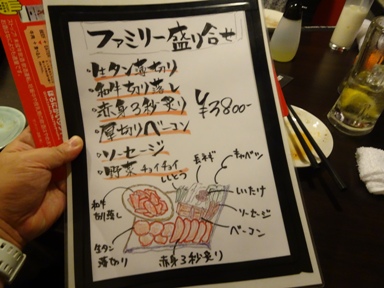 ファミリー盛り合せ
・生タン薄切り
・和牛切り落し
・赤身3秒炙り
・厚切りベーコン
・ソーセージ
・野菜 チョイチョイ
¥3800-
ししとう
長ネギ
キャベツ
しいたけ
ソーセージ
ベーコン
和牛
切り落し
生タン
薄切り
赤身3秒炙り